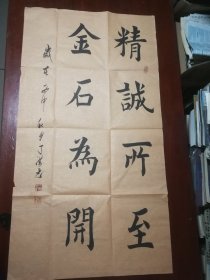 精誠所至
金石為開
歲在丙申